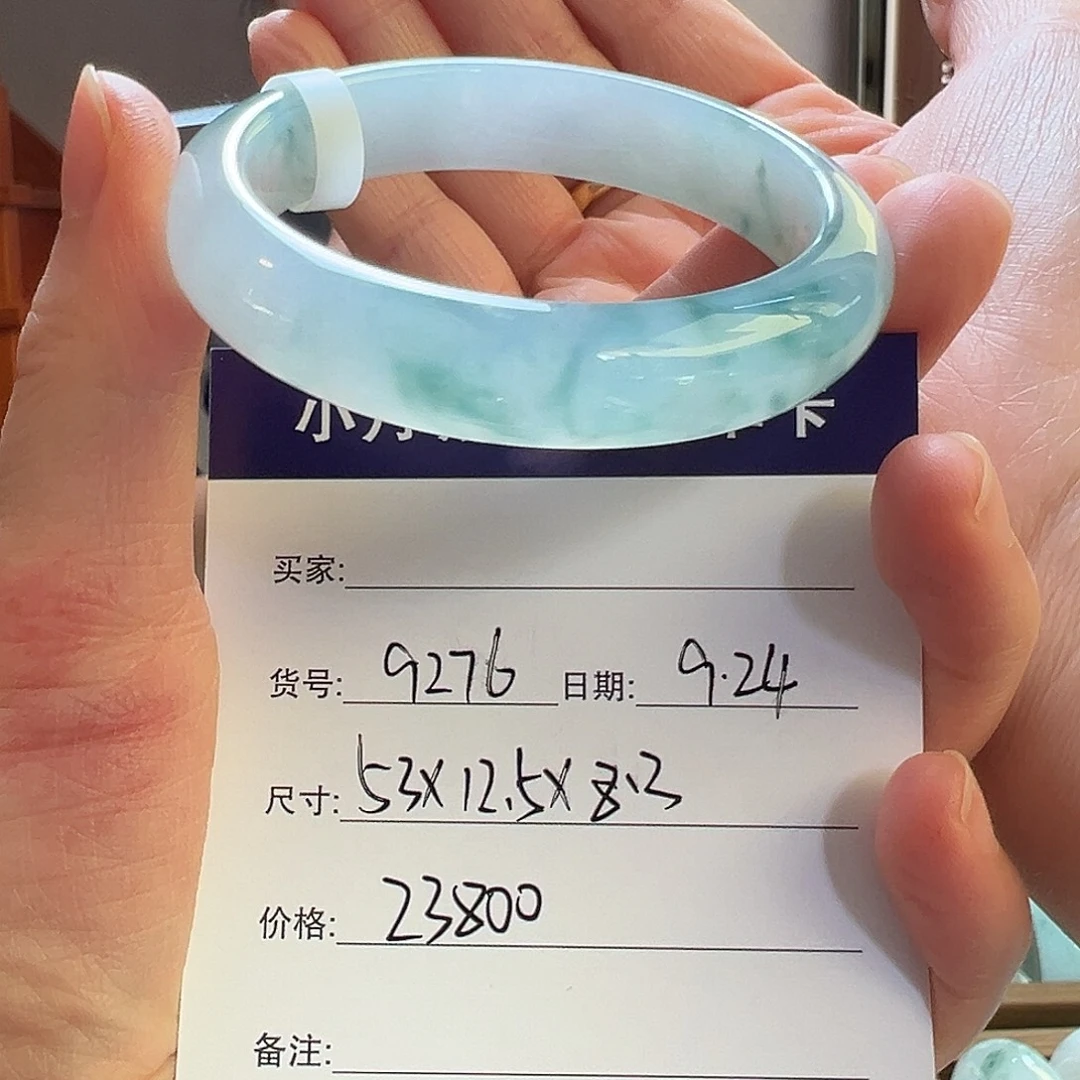 小月
卡
买家:
货号: 9276 日期: 9.24
尺寸: 53X12.5X8.3
价格: 23800
备注: